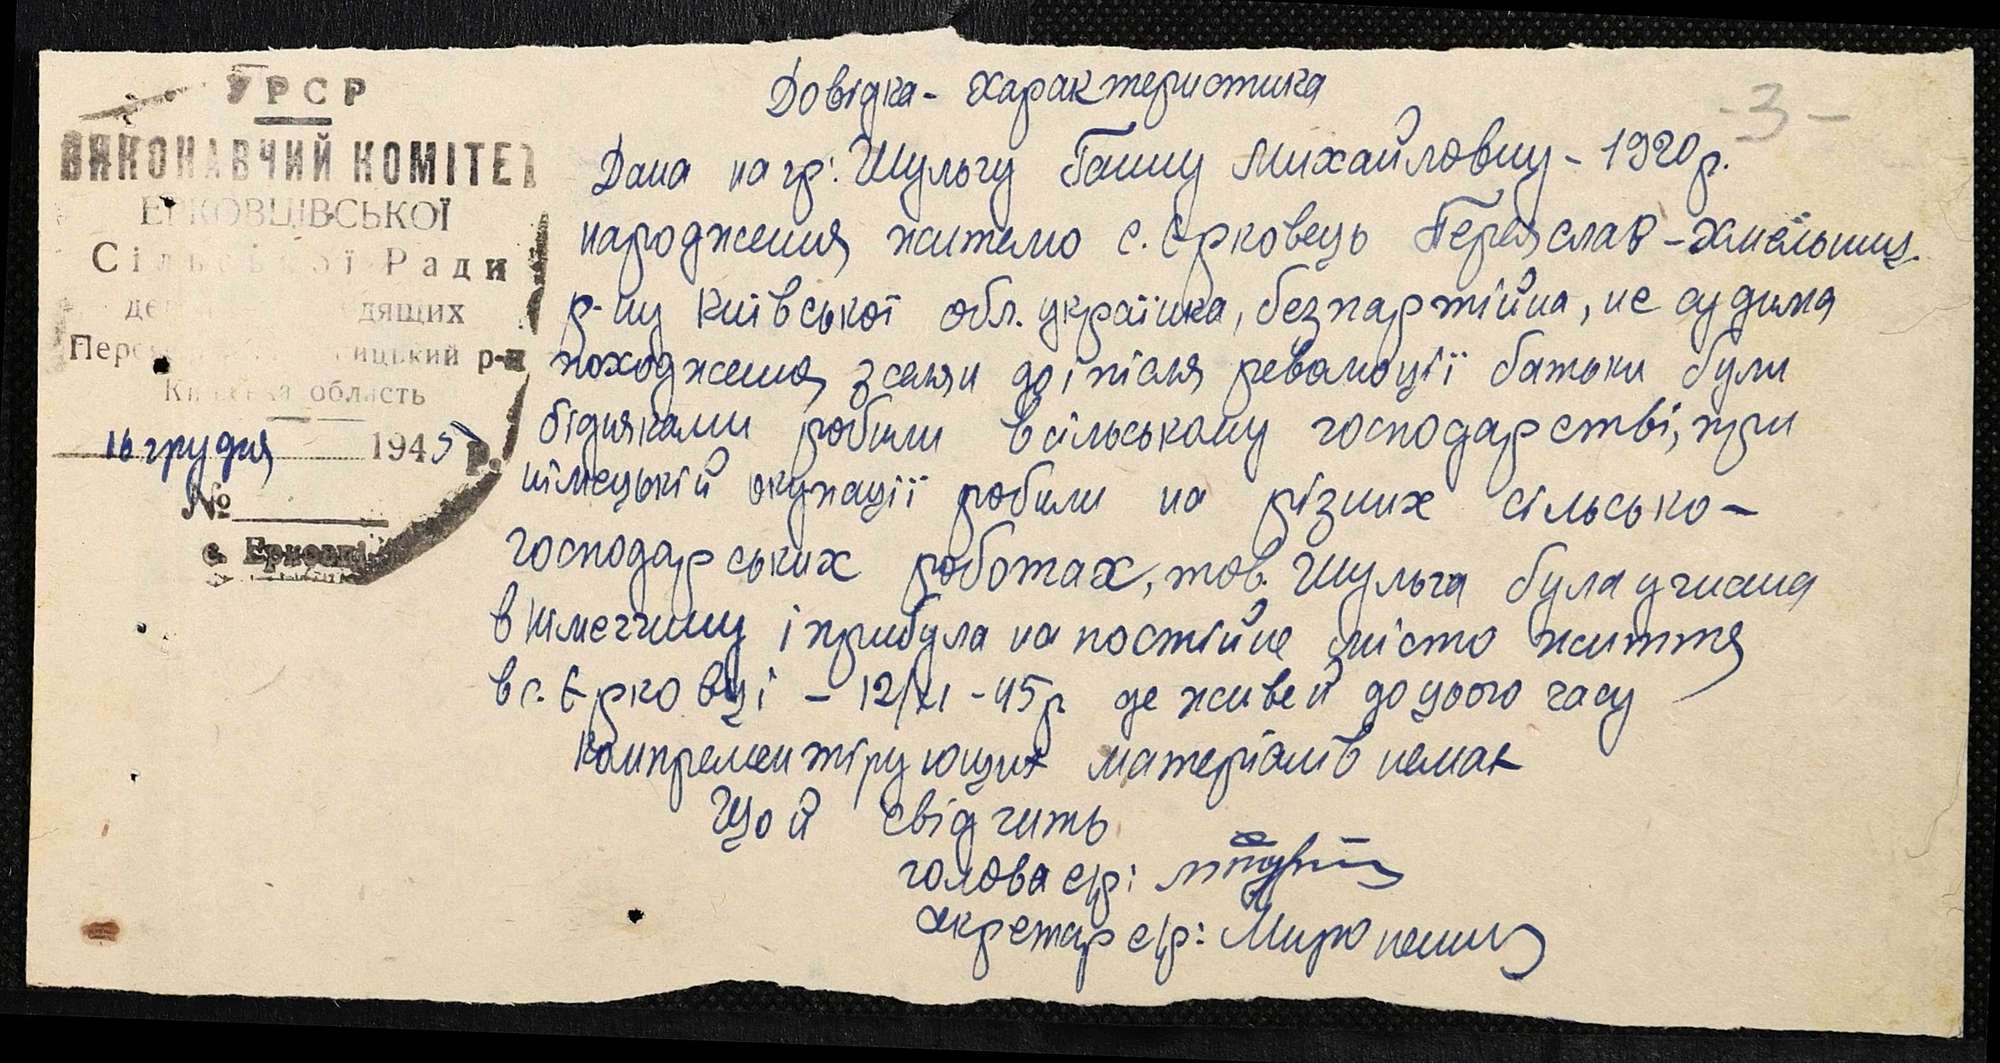 УРСР
ВИКОНАВЧИЙ КОМІТЕТ
ЕРКОВЦІВСЬКОЇ
Сільської Ради
дящих
р-н
Київська область
16 грудня 1945 р.
№
с. Ерковці
-3-
Довідка - характеристика
Дана на гр: Шульгу Ганну Михайловну - 1920 р.
народження жителю с. Єрковець Переяслав-Хмельниц.
р-ну Київської обл. українка, безпартійна, не судима
походження з селян до і після революції батьки були
бідняками робили в сільському господарстві, при
німецькій окупації робили на різних сільсько-
господарських роботах, тов. Шульга була угнана
в Німеччину і прибула на постійне місто життя
в с. Єрковці - 12/XI - 45 р. де живе й до цього часу
компрементірующих матеріалів немає
Що й свідчить
голова с/р:
секретар с/р: